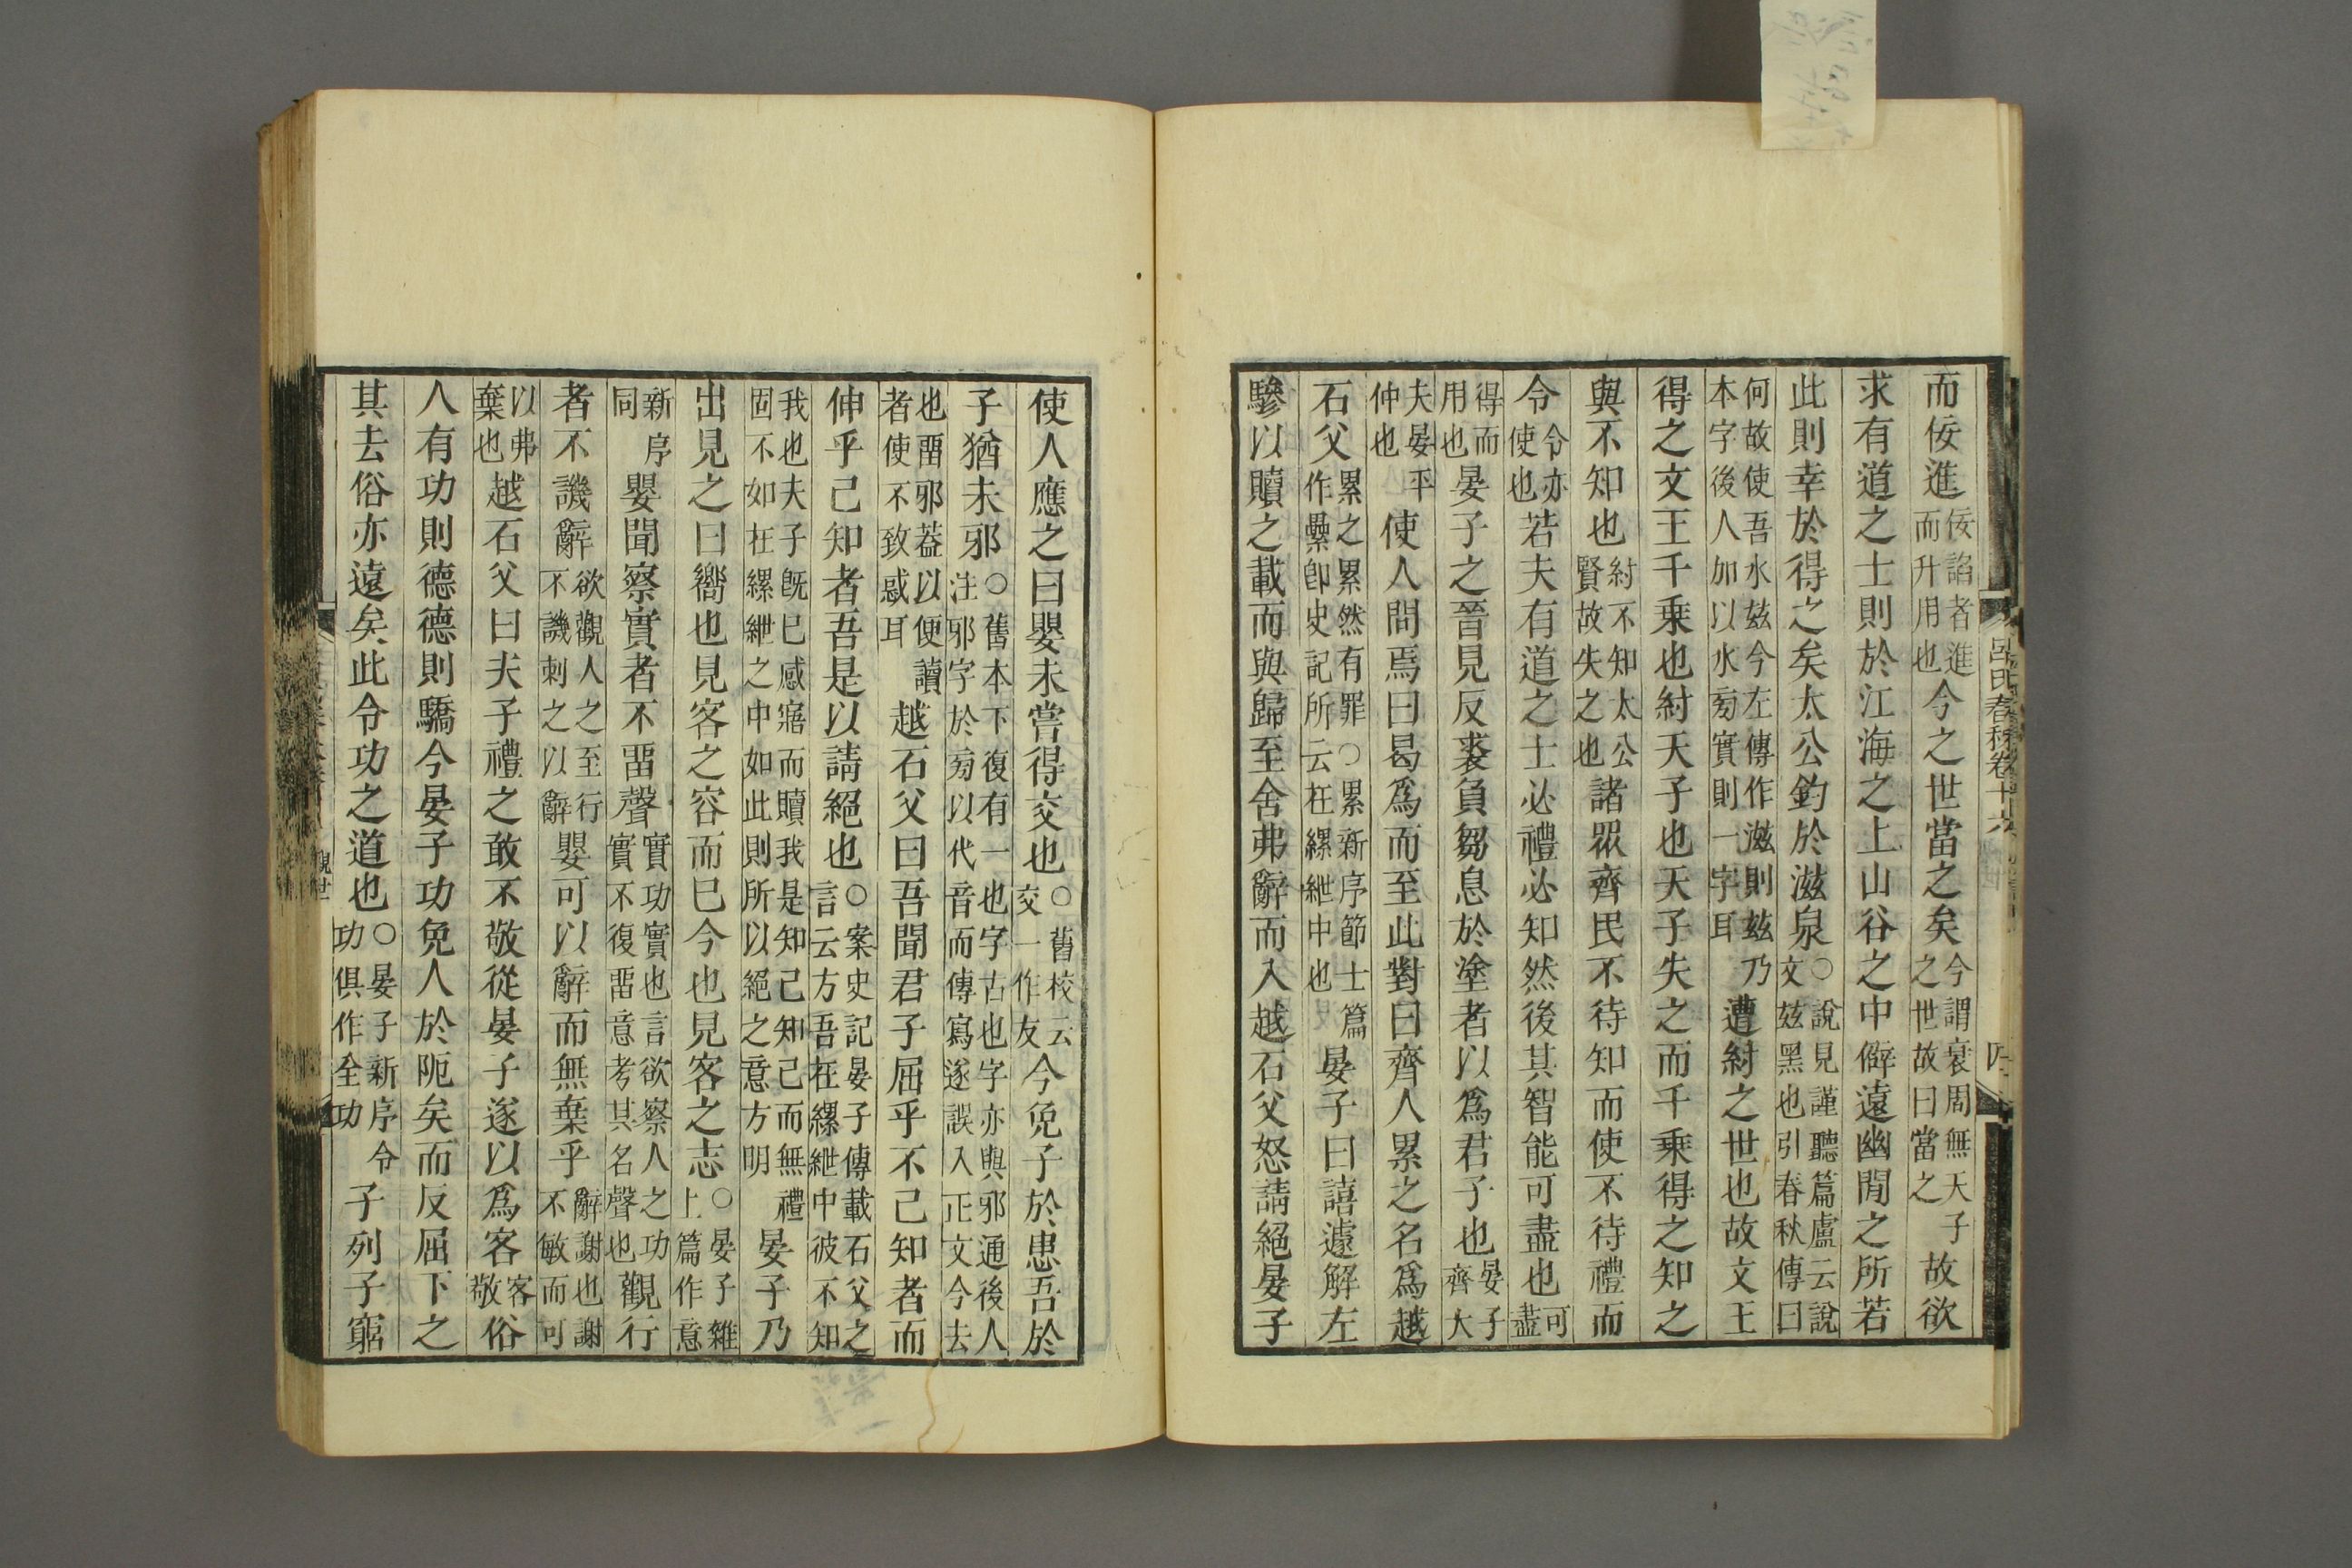 呂氏春秋卷十六
而佞進佞諂者進而升用也今之世當之矣今謂衰周無天子之世故曰當之故欲
求有道之士則於江海之上山谷之中僻遠幽閒之所若
此則幸於得之矣太公釣於滋泉○說見謹聽篇盧云說文玆黑也引春秋傳曰
何故使吾水玆今左傳作滋則玆乃本字後人加以水㫄實則一字耳遭紂之世也故文王
得之文王千乗也紂天子也天子失之而千乗得之知之
與不知也紂不知太公賢故失之也諸眾齊民不待知而使不待禮而
令令亦使也若夫有道之士必禮必知然後其智能可盡也可盡
得而用也晏子之晉見反裘負芻息於塗者以爲君子也晏子齊大
夫晏平仲也使人問焉曰曷爲而至此對曰齊人累之名爲越
石父累之累然有罪○累新序節士篇作纍卽史記所云在縲紲中也晏子曰譆遽解左
驂以贖之載而與歸至舍弗辭而入越石父怒請絕晏子
使人應之曰嬰未嘗得交也○舊校云交一作友今免子於患吾於
子猶未邪○舊本下復有一也字古也字亦與邪通後人注邪字於㫄以代音而傳寫遂誤入正文今去
也畱邪葢以便讀者使不致惑耳越石父曰吾聞君子屈乎不己知者而
伸乎己知者吾是以請絕也○案史記晏子傳載石父之言云方吾在縲紲中彼不知
我也夫子旣已感寤而贖我是知己知己而無禮固不如在縲紲之中如此則所以絕之意方明晏子乃
出見之曰嚮也見客之容而已今也見客之志○晏子雜上篇作意
新序同嬰聞察實者不畱聲實功實也言欲察人之功實不復畱意考其名聲也觀行
者不譏辭欲觀人之至行不譏刺之以辭嬰可以辭而無棄乎辭謝也謝不敏而可
以弗棄也越石父曰夫子禮之敢不敬從晏子遂以爲客客敬俗
人有功則德德則驕今晏子功免人於阨矣而反屈下之
其去俗亦遠矣此令功之道也○晏子新序令功俱作全功子列子窮
觀世